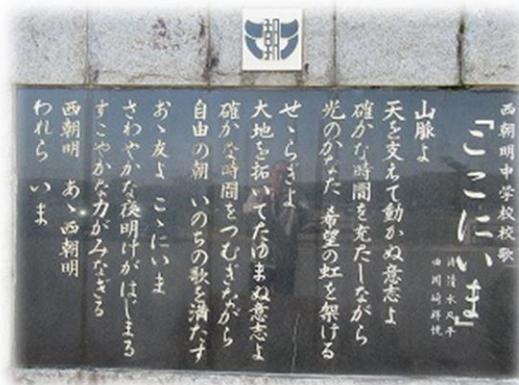 朝
西朝明中学校校歌
『ここにいま』
詩 清水凡平
曲 岡崎祥悦
山脈よ
天を支えて動かぬ意志よ
確かな時間を充たしながら
光のかなた 希望の虹を架ける
せゝらぎよ
大地を拓いてたゆまぬ意志よ
確かな時間をつむぎながら
自由の朝 いのちの歌を満たす
おゝ友よ こゝにいま
さわやかな夜明けがはじまる
すこやかな力がみなぎる
西朝明 あゝ西朝明
われら いま